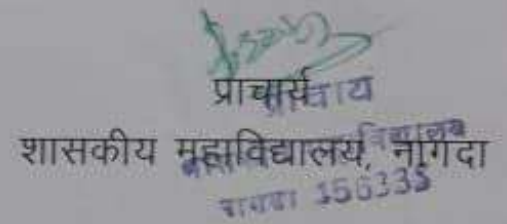 प्राचार्य
शासकीय महाविद्यालय, नागदा
नागदा 456335